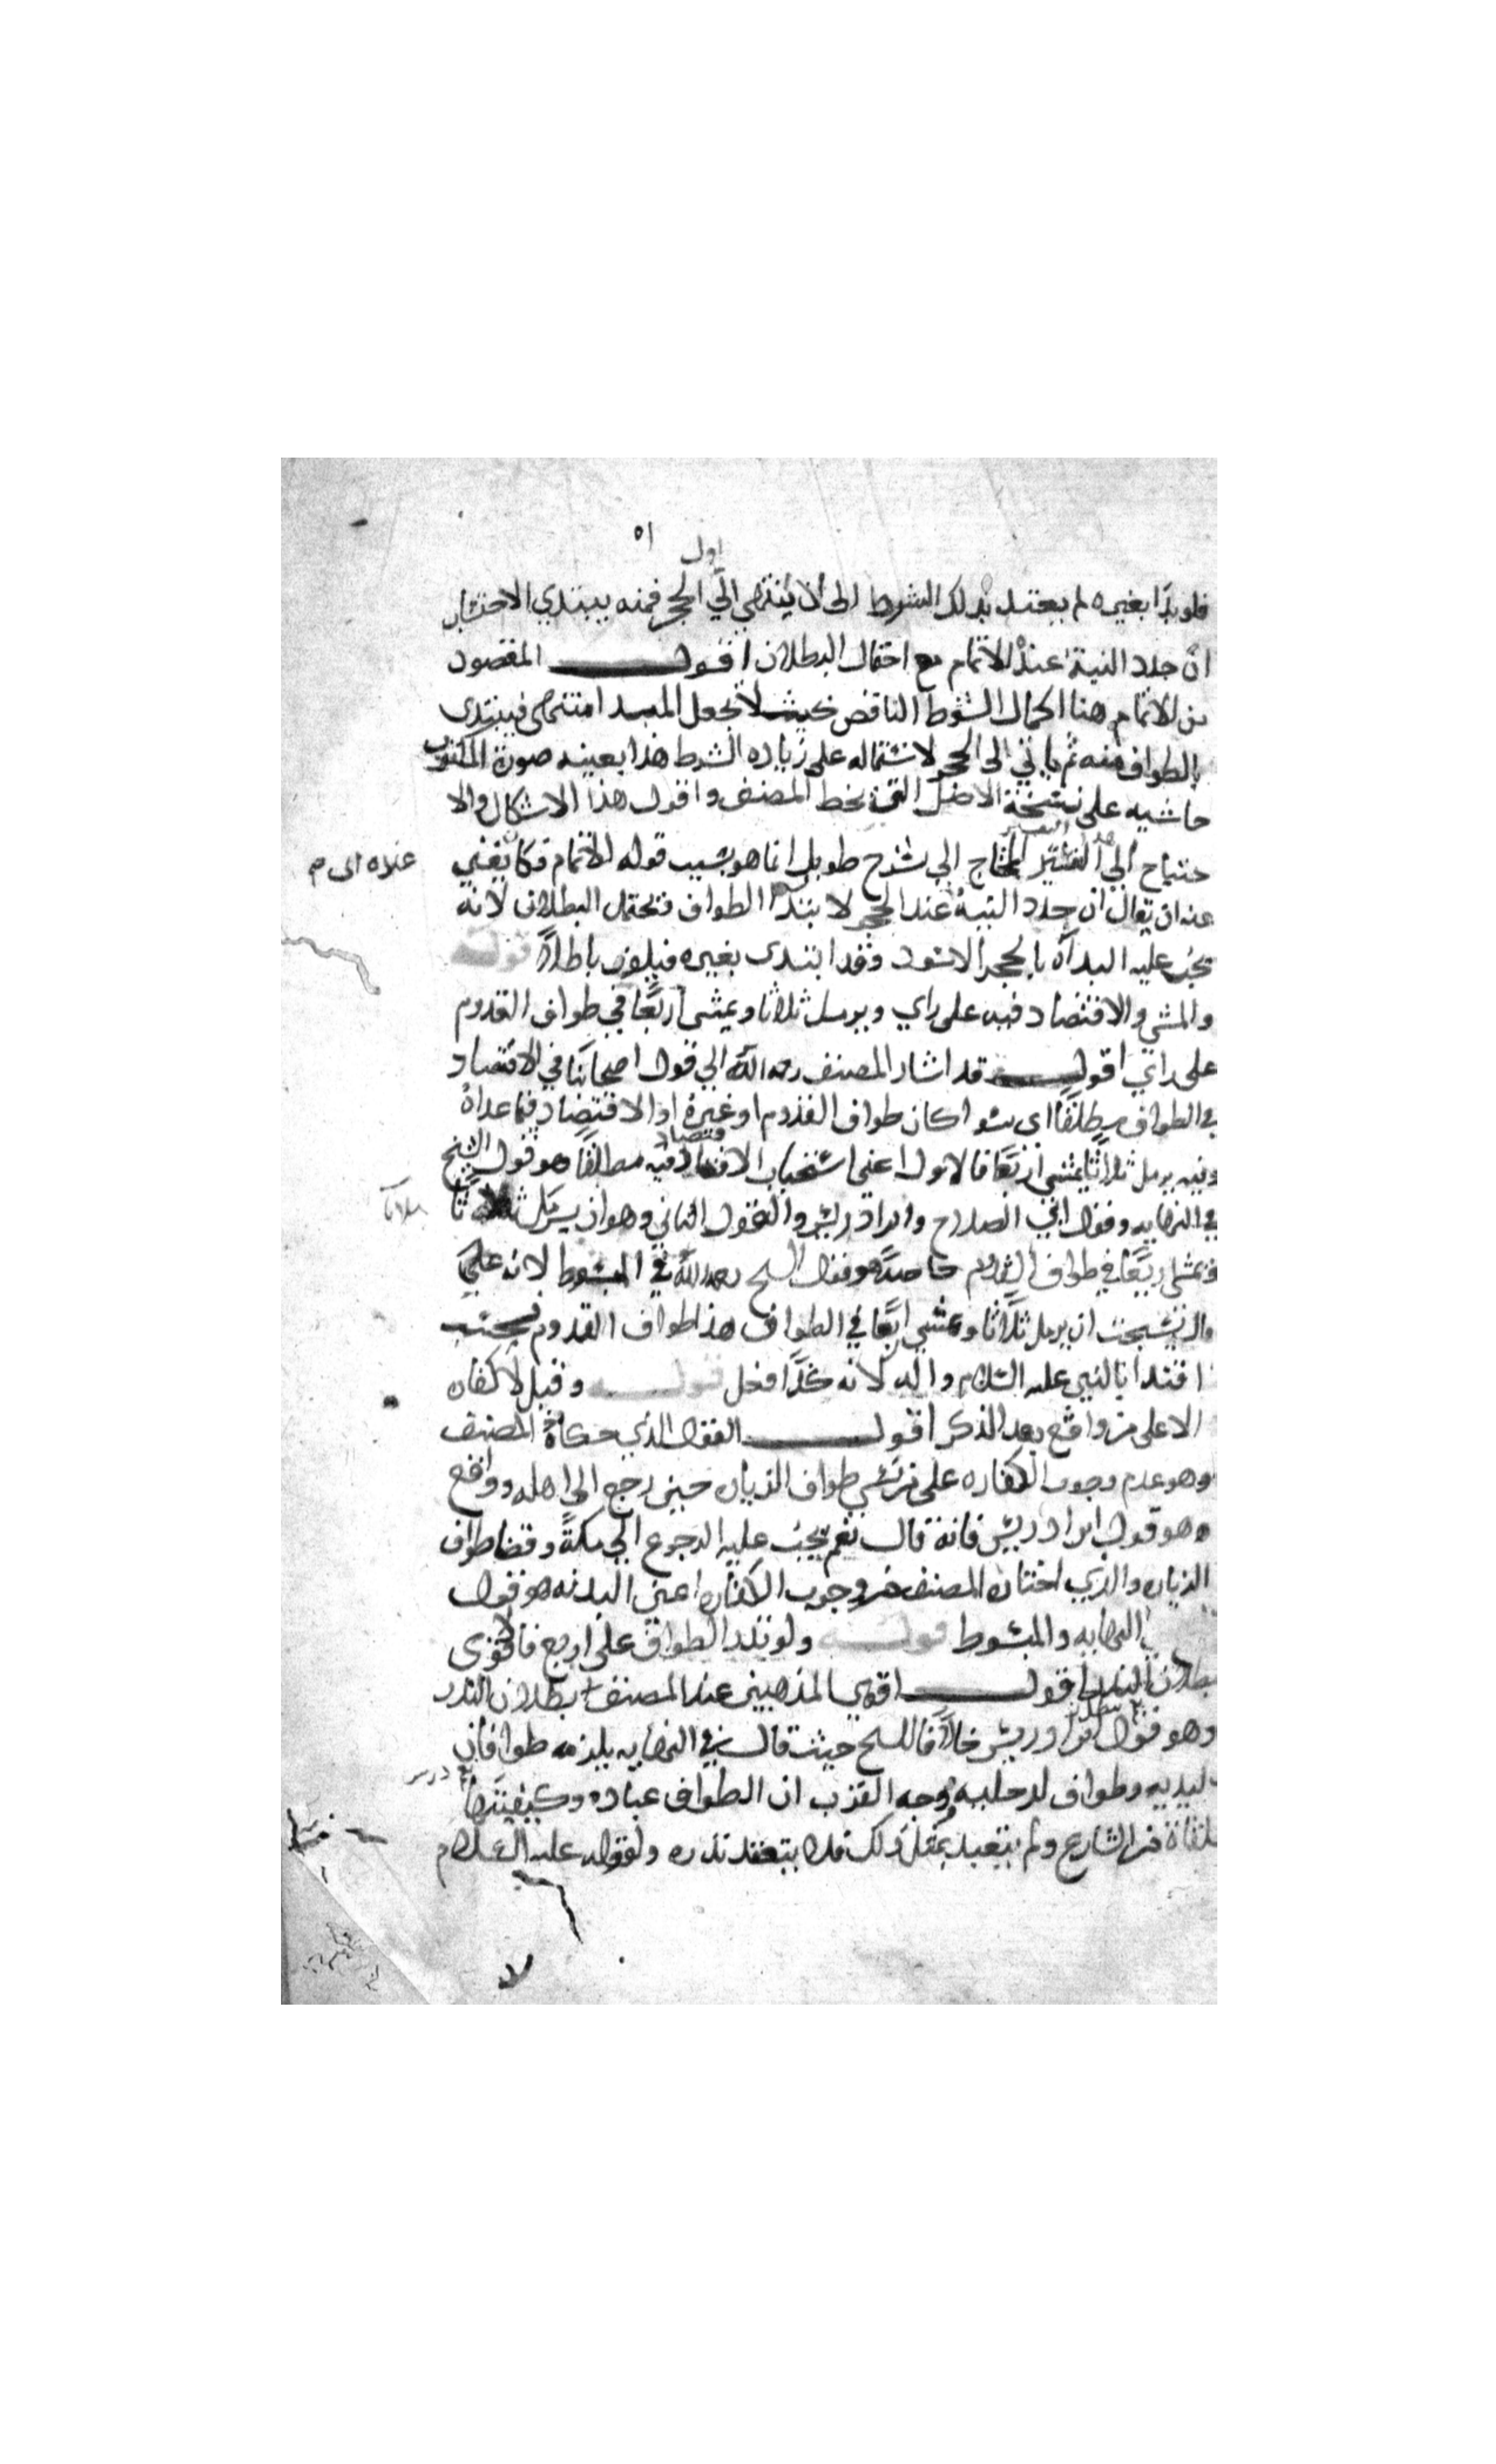 اول
٥١
فلو بدا بغيره لم يعتد بذلك الشوط الى ان ينتهي الي الحجر فمنه يبتدي الاحتساب
ان جدد النية عند الاتمام مع احتمال البطلان اقول المقصود
من الاتمام هنا اكمال الشوط الناقص بحيث لا يجعل المبدا منتهى فيبتدى
بالطواف منه ثم ياتي الى الحجر لاشتماله على زياده الشوط هذا بعينه صورة المكتوب
حاشيه على نسخة الاصل التى بخط المصنف واقول هذا الاشكال والا
حتياح الي هذا التفسير المحتاج الي شرح طويل انما هو بسبب قوله الاتمام فكان يغني
عنه ان يقال ان جدد النية عند الحجر لابتدا الطواف فيحتمل البطلان لانه
يجب عليه البدأة بالحجر الاسود وقد ابتدى بغيره فيكون باطلا قوله
والمشي والاقتصاد فيه على راي ويرمل ثلاثا ويمشى اربعا في طواف القدوم
على راي اقول قد اشار المصنف رحمه الله الي قول اصحابنا في الاقتصاد
في الطواف مطلقا اى سوا كان طواف القدوم او غيره او الاقتصاد فيما عداه
وفيه يرمل ثلاثا ويمشي اربعا فالاول اعنى استحباب الاقتصاد فيه مطلقا هو قول الشيخ
في النهايه وقول ابي الصلاح وابن ادريس والقول الثاني وهو ان يرمل ثلاثا
ويمشى اربعا في طواف القدوم خاصة هو قول الشيخ رحمه الله في المبسوط لانه عليم
قال يستحب ان يرمل ثلاثا ويمشي اربعا في الطواف هذا طواف القدوم فحسب
اقتدا بالنبي عليه السلام واله لانه كذا فعل قوله وقيل لا كفاره
الا على من واقع بعد الذكر اقول القول الذي حكاه المصنف
وهو عدم وجوب الكفاره على من نسي طواف الزياره حين رجع الي اهله وواقع
هو قول ابن ادريس فانه قال نعم يجب عليه الرجوع الي مكة وقضا طواف
الزياره والذي اختاره المصنف من وجوب الكفاره اعنى البدنه هو قول
النهايه والمبسوط قوله ولو نذر الطواف على اربع فالاقوى
بطلان النذر اقول اقوي المذهبين عند المصنف بطلان النذر
وهو قول ابن ادريس خلافا للشيخ حيث قال في النهايه يلزمه طوافان
ليديه وطواف لرجليه وجه القرب ان الطواف عباده وكيفيتها
متلقاة من الشارع ولم يتعبد بمثل ذلك فلا ينعقد نذره ولقوله عليه السلام
لا